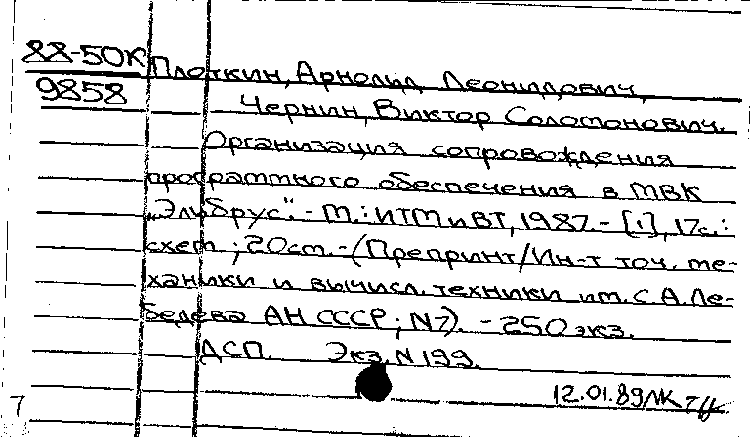 88-50К
9858
Плоткин, Арнольд Леонидович,
Чернин, Виктор Соломонович.
Организация сопровождения
программного обеспечения в МВК
„Эльбрус". - М.: ИТМ и ВТ, 1987. - [1], 17с.:
схем ; 20см. - (Препринт/Ин-т точ. ме-
ханики и вычисл. техники им. С.А.Ле-
бедева АН СССР; N7). - 250 экз.
ДСП. Экз. N 199.
12.01.89
7